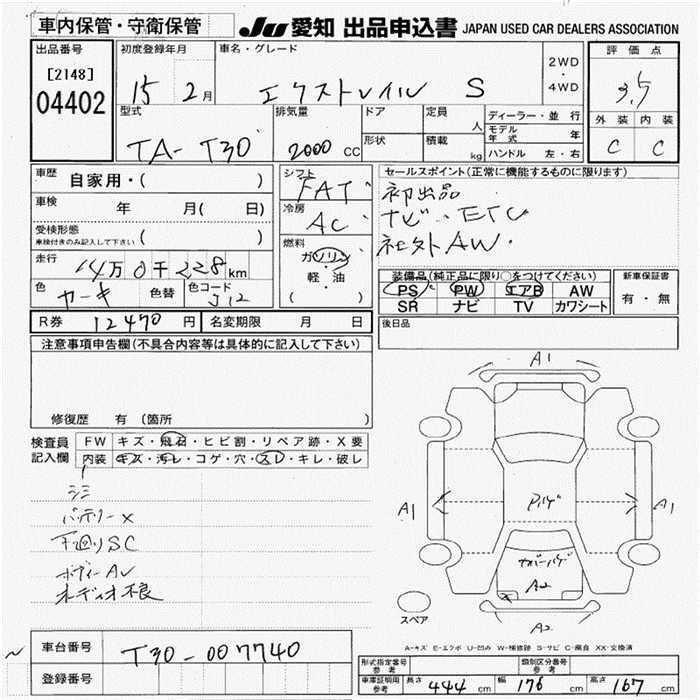 車内保管・守衛保管
JU 愛知 出品申込書 JAPAN USED CAR DEALERS ASSOCIATION
出品番号 初度登録年月 車名・グレード 評価点
[2148]
04402
15 2月 エクストレイル S 2WD・4WD 3.5
型式 排気量 ドア 定員 人 ディーラー・並行 外装 内装
TA-T30 2000 CC 形状 積載 kg モデル年式 年 C C
ハンドル 左・右
車歴 自家用・( )
シフト FAT
セールスポイント(正常に機能するものに限ります)
初出品
ナビ・ETC
社外AW・
車検 年 月( 日)
冷房 AC
受検形態
車検付きのみ記入して下さい ( )
燃料 ガソリン
軽・油
( )
走行 14万0千228km
色 カーキ 色替 色コード J12
装備品(純正品に限り○をつけてください) 新車保証書
PS PW エアB AW 有・無
SR ナビ TV カワシート
R券 12470円 名変期限 月 日
後日品
注意事項申告欄(不具合内容等は具体的に記入して下さい)
修復歴 有(箇所 )
検査員記入欄 FW キズ・飛石・ヒビ割・リペア跡・X要
内装 キズ・汚レ・コゲ・穴・スレ・キレ・破レ
シミ
バッテリーX
下回りSC
ボディーAU
オーディオ不良
A1
A1
A1
A2
A2
スペア
A-キズ E-エクボ U-凹み W-補修跡 S-サビ C-腐食 XX-交換済
車台番号 T30-007740
登録番号
形式指定番号 参考 類別区分番号 参考
車庫証明用 参考 長さ 444 cm 幅 176 cm 高さ 167 cm